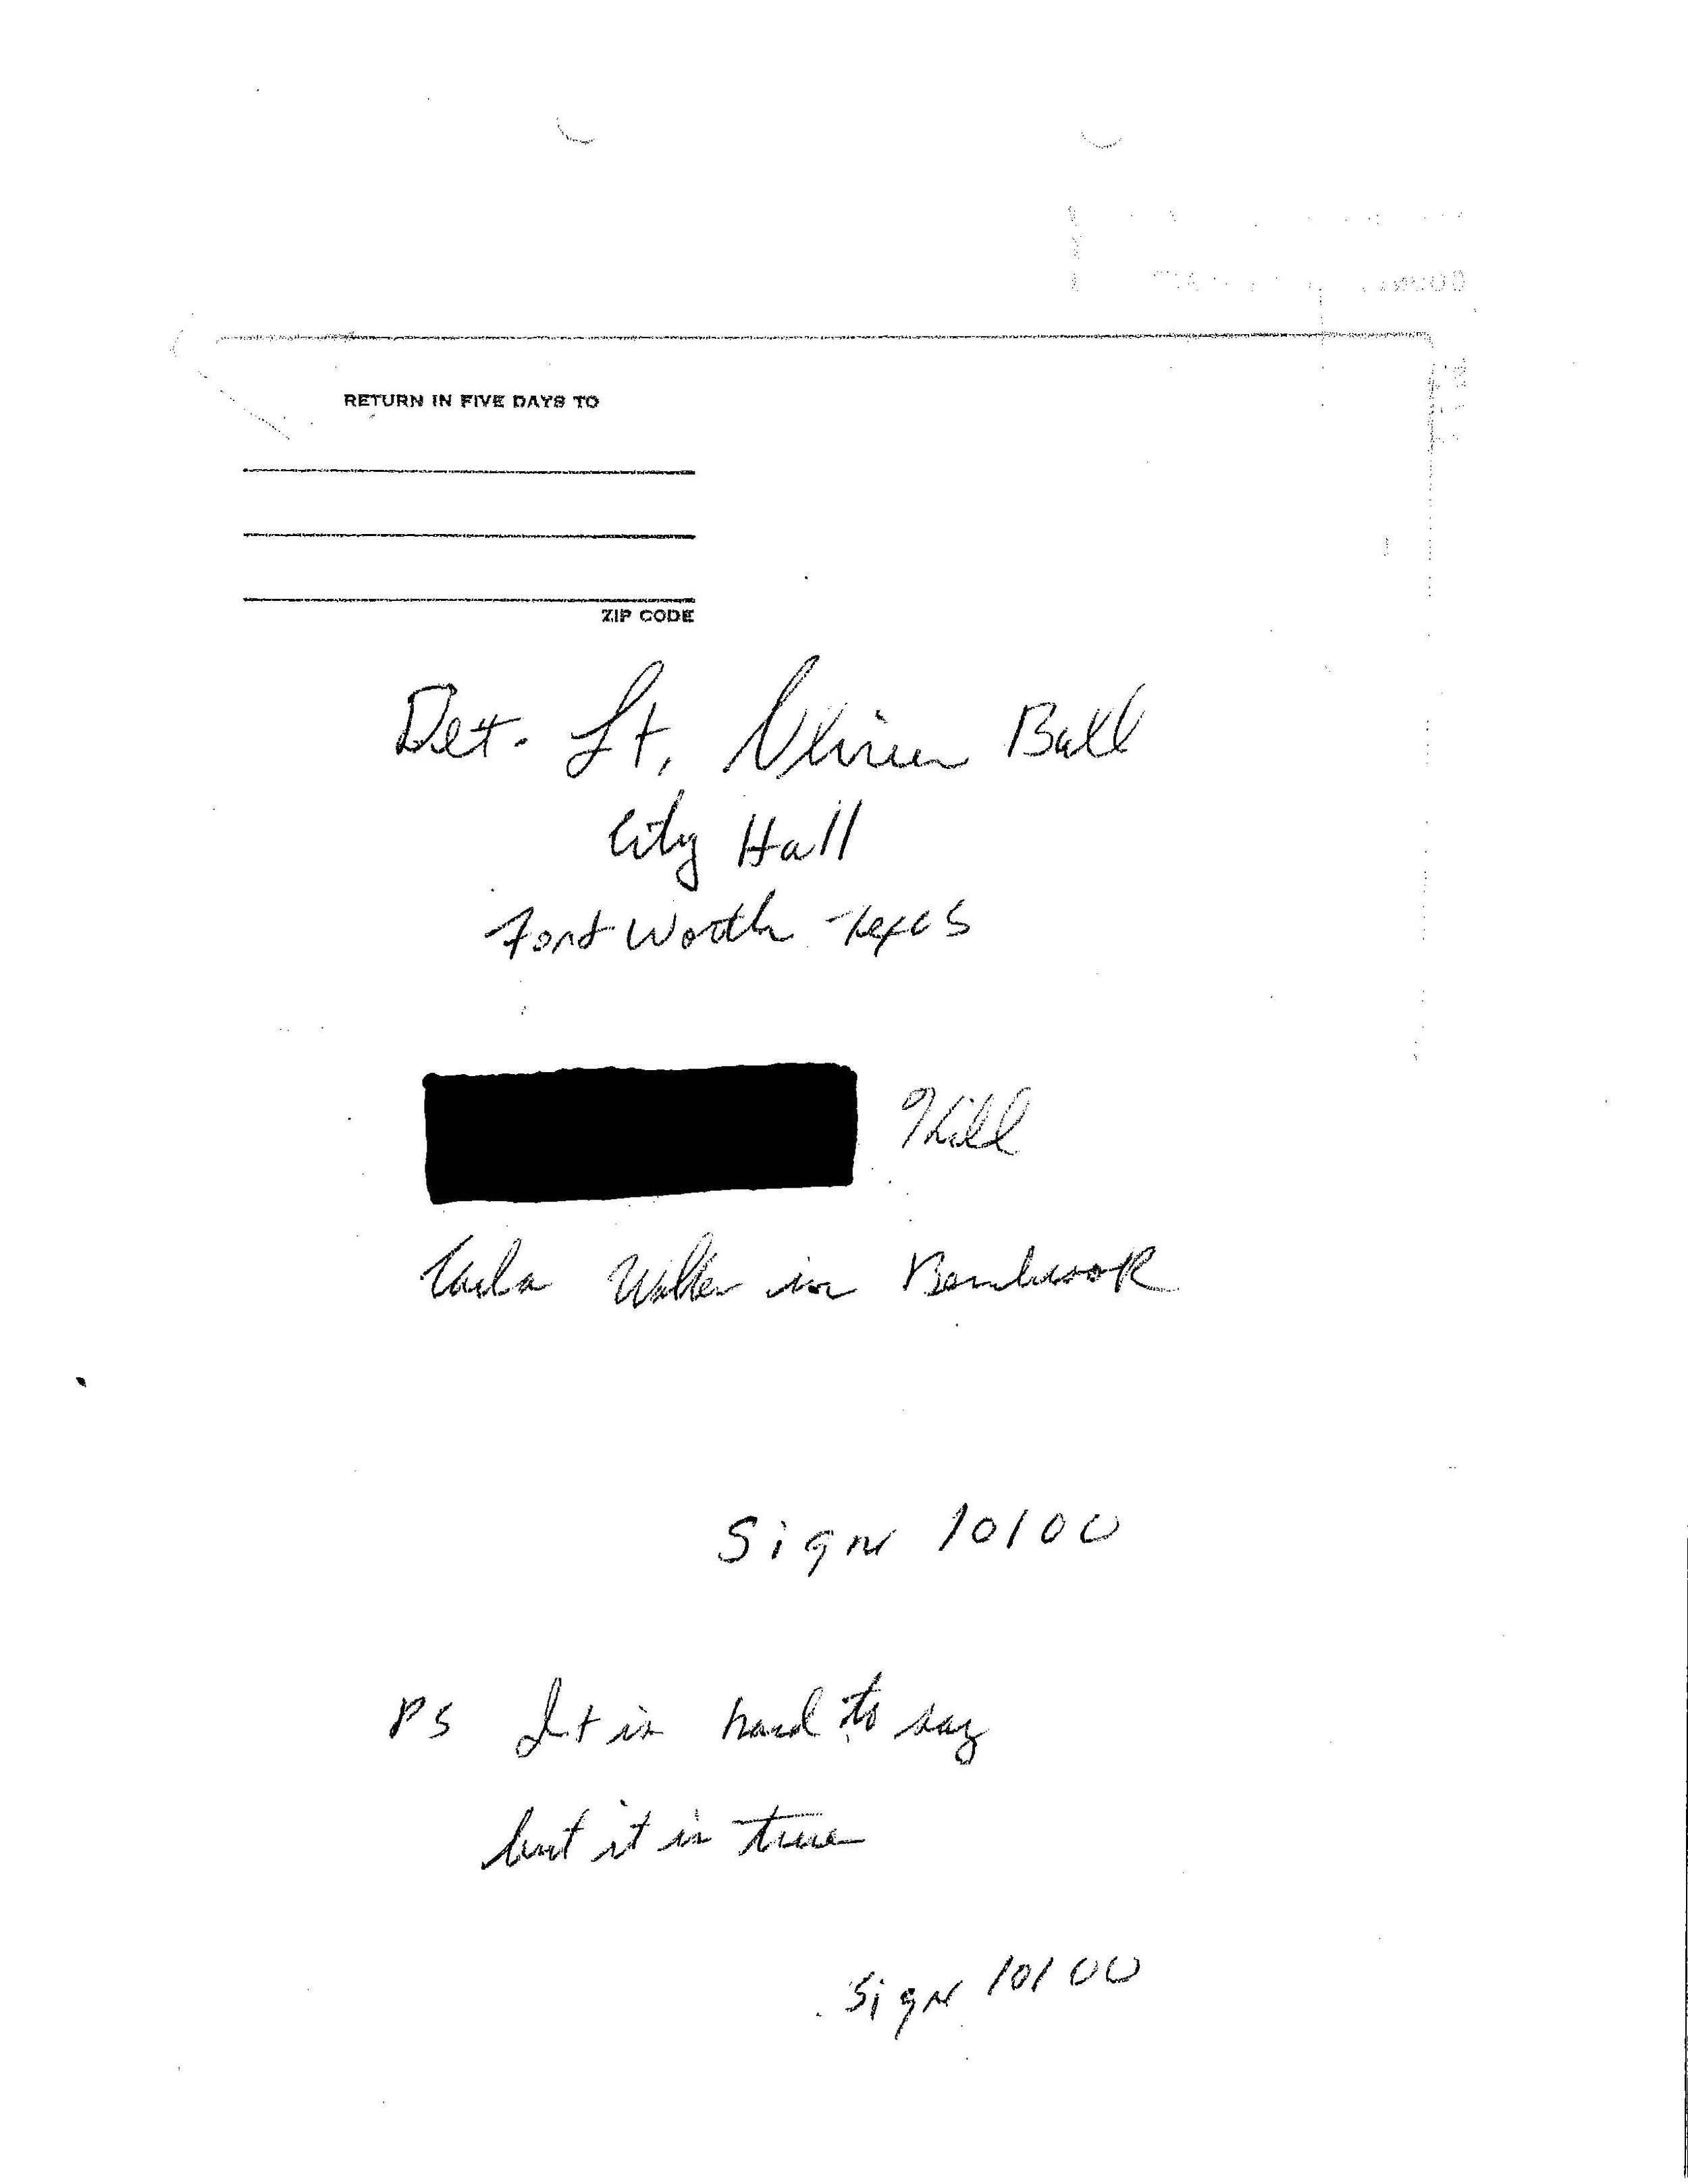 RETURN IN FIVE DAYS TO
ZIP CODE
Det. Lt, Oliver Ball
City Hall
Fort Worth Texas
Kill
Carla Walker in Benbrook
Sign 10100
PS It is hard to say
but it is true
Sign 10100